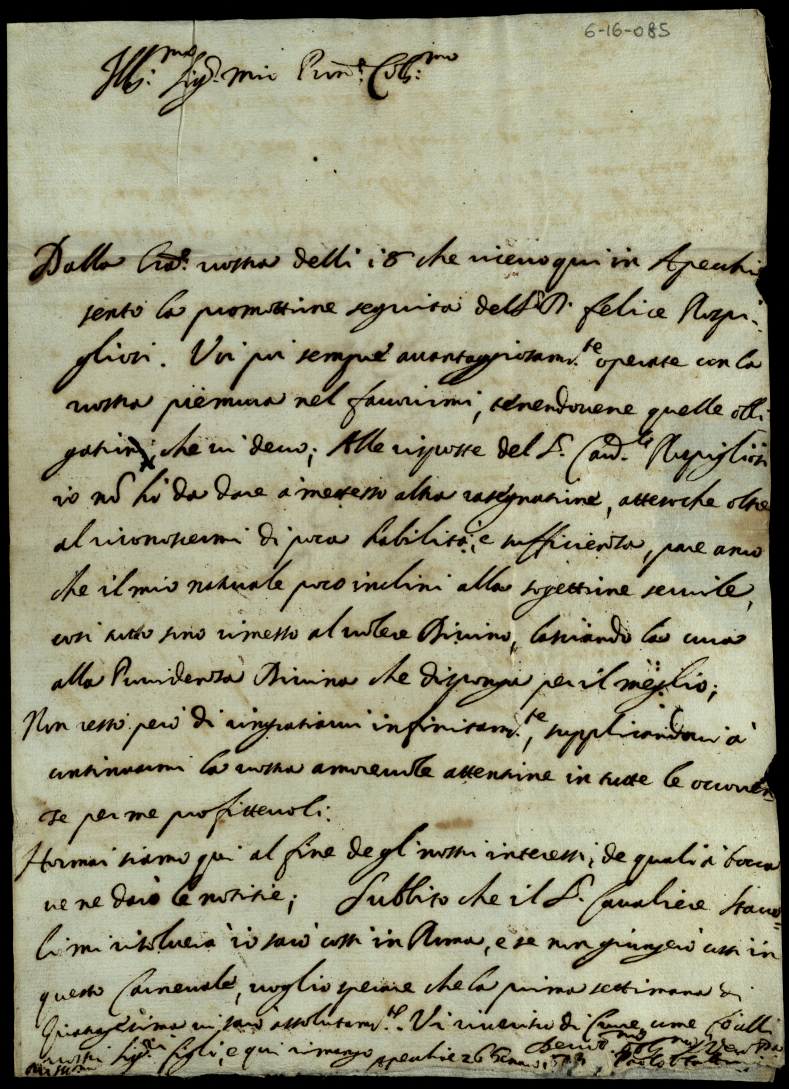 6-16-085
Ill:mo Sig.r mio Pron.e Coll:mo
Dalla Grad.a vostra delli 18 che ricevo qui in Apecchie
sento la promottione seguita del S.r D. Felice Rospi-
gliosi. Voi poi sempre avantaggiosam.te operate con la
vostra premura nel favorirmi, tenendovene quelle obli
gationi, che vi devo; Alle risposte del S.r Card.le Rospigliosi
io nõ hò da dare à me stesso altra rasegnatione, atteso che oltre
al riconoscermi di poca habilità, e sufficienza, pare anco
che il mio naturale poco inclini alla sogettione servile,
così tutto sono rimesso al volere Divino, lasciando la cura
alla Providenza Divina che disponga per il meglio;
Non resto però di ringratiarvi infinitam.te, supplicandovi à
continuarmi la vostra amorevole attentione in tutte le occoren-
ze per me profittevoli:
Hormai siamo qui al fine degl' nostri interessi, de quali à bocca
ve ne darò le notitie; Subbito che il S.r Cavaliere
mi risolverà io sarò costì in Roma, e se non giungerò costì in
questo Carnevale, voglio sperare che la prima settimana di
Quaragesima vi sarò assolutam.te. Vi riverisco di Cuore, come fò alli
vostri Sig.ri figli, e qui rimango Apecchie 26 Genn.o